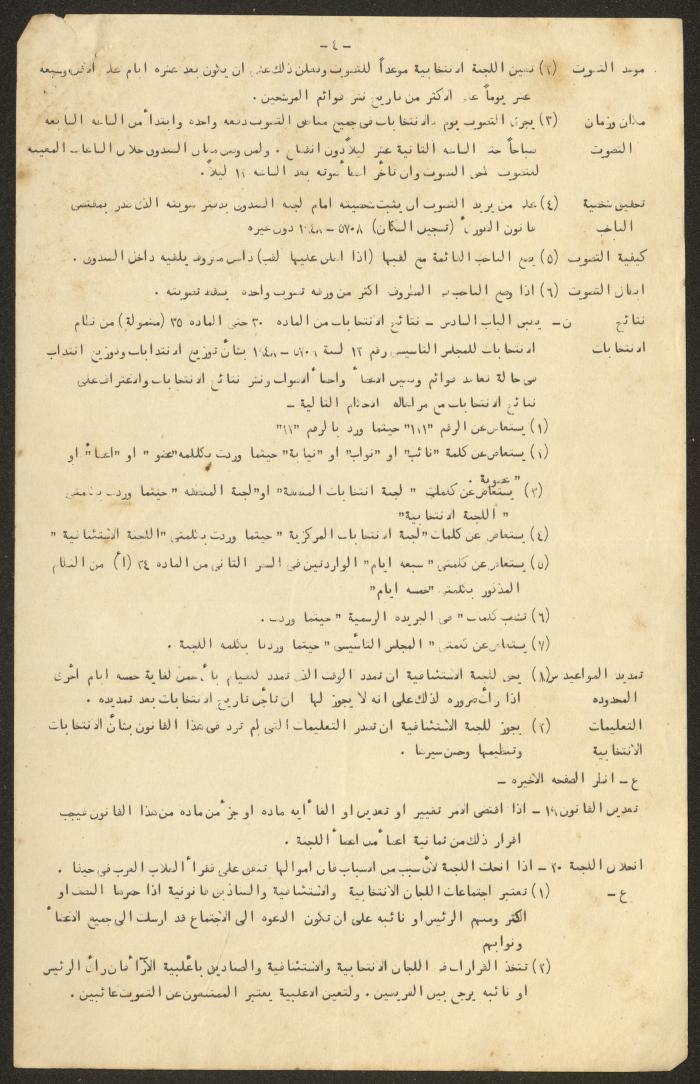 - ٤ -
موعد التصويت (٢) تعين اللجنة الانتخابية موعداً للتصويت وتعلن ذلك على ان يكون بعد عشره ايام على الاقل وسبعه
عشر يوماً على الاكثر من تاريخ نشر قوائم المرشحين .
مكان وزمان (٣) يجرى التصويت يوم الانتخابات فى جميع مناطق التصويت دفعه واحده وابتدأ من الساعه السابعه
التصويت صباحاً حتى الساعه الثانية عشر ليلاً دون انقطاع . ولمن وصل مكان الصندوق خلال الساعات المعينه
للتصويت الحق التصويت وان تأخر اعطأ صوته بعد الساعه ١٢ ليلاً .
تحقيق شخصية (٤) على من يريد التصويت ان يثبت شخصيته امام لجنه الصندوق بدفتر هويته الذى صدر بمقتضى
الناخب قانون الطورىء (تسجيل السكان) ٥٧٠٨ - ١٩٤٨ دون غيره
كيفية التصويت (٥) يضع الناخب القائمة مع لقبها (اذا اطلق عليها لقب) داخل مظروف يلقيه داخل الصندوق .
ابطال التصويت (٦) اذا وضع الناخب فى المظروف اكثر من ورقه تصويت واحده يسقط تصويته .
نتائج ن - يعطى الباب السادس - نتائج الانتخابات من الماده ٣٠ حتى الماده ٣٥ (مشمولة) من نظام
الانتخابات الانتخابات للمجلس التاسيسى رقم ١٢ لسنة ٥٧٠٩ - ١٩٤٨ بشأن توزيع الانتدابات وتوزيع انتداب
فى حالة تعاهد قوائم وتعيين الاعضأ واحصأ الاصوات ونشر نتائج الانتخابات والاعتراف على
نتائج الانتخابات مع مراعاة الاحكام التالية -
(١) يستعاض عن الرقم "١٠١" حيثما ورد بالرقم "١١"
(٢) يستعاض عن كلمة "نائب" او "نواب" او "نيابة" حيثما وردت بكلمه "عضو" او "اعضأ" او
"عضوية .
(٣) يستعاض عن كلمات " لجنة انتخابات المنطقة" او "لجنة المنطقه " حيثما وردت بكلمتى
" اللجنة الانتخابية"
(٤) يستعاض عن كلمات "لجنة الانتخابات المركزية " حيثما وردت بكلمتى "اللجنة الاستئنافية "
(٥) يستعاض عن كلمتى " سبعه ايام" الواردتين فى السطر الثانى من الماده ٣٤ (أ) من النظام
المذكور بكلمتى "خمسه ايام"
(٦) تشطب كلمات " فى الجريده الرسمية " حيثما وردت .
(٧) يستعاض عن كلمتى " المجلس التأسيسى " حيثما وردتا بكلمه اللجنة .
تمديد المواعيد س(٨) يحق للجنة الاستئنافية ان تمدد الوقت الذى تمدد للقيام بأى عمل لغاية خمسه ايام أخرى
المحدوده اذا رأت ضروره لذلك على انه لا يجوز لها ان تأجل تاريخ الانتخابات بعد تمديده .
التعليمات (٢) يجوز للجنة الاستئنافية ان تصدر التعليمات التى لم ترد فى هذا القانون بشأن الانتخابات
الانتخابية وتنظيمها وحسن سيرها .
ع - انظر الصفحه الاخيره -
تعديل القانون ١٩ - اذا اقتضى الامر تغيير او تعديل او الغأ أيه ماده او جزء من ماده من هذا القانون فيجب
اقرار ذلك من ثمانية اعضأ من اعضأ اللجنة .
انحلال اللجنة ٢٠ - اذا انحلت اللجنة لأى سبب من الاسباب فان اموالها تنفق على فقرأ الطلاب العرب فى حيفا .
ع - (١) تعتبر اجتماعات اللجان الانتخابية والاستئنافية والصناديق قانونية اذا حضرها النصف او
اكثر ومنهم الرئيس او نائبه على ان تكون الدعوه الى الاجتماع قد ارسلت الى جميع الاعضأ
ونوابهم
(٢) تتخذ القرارات فى اللجان الانتخابية والاستئنافية والصناديق بأغلبية الآرأ فان رأى الرئيس
او نائبه يرجح بين الفريقين . ولتعين الاغلبية يعتبر الممتنعون عن التصويت غائبين .